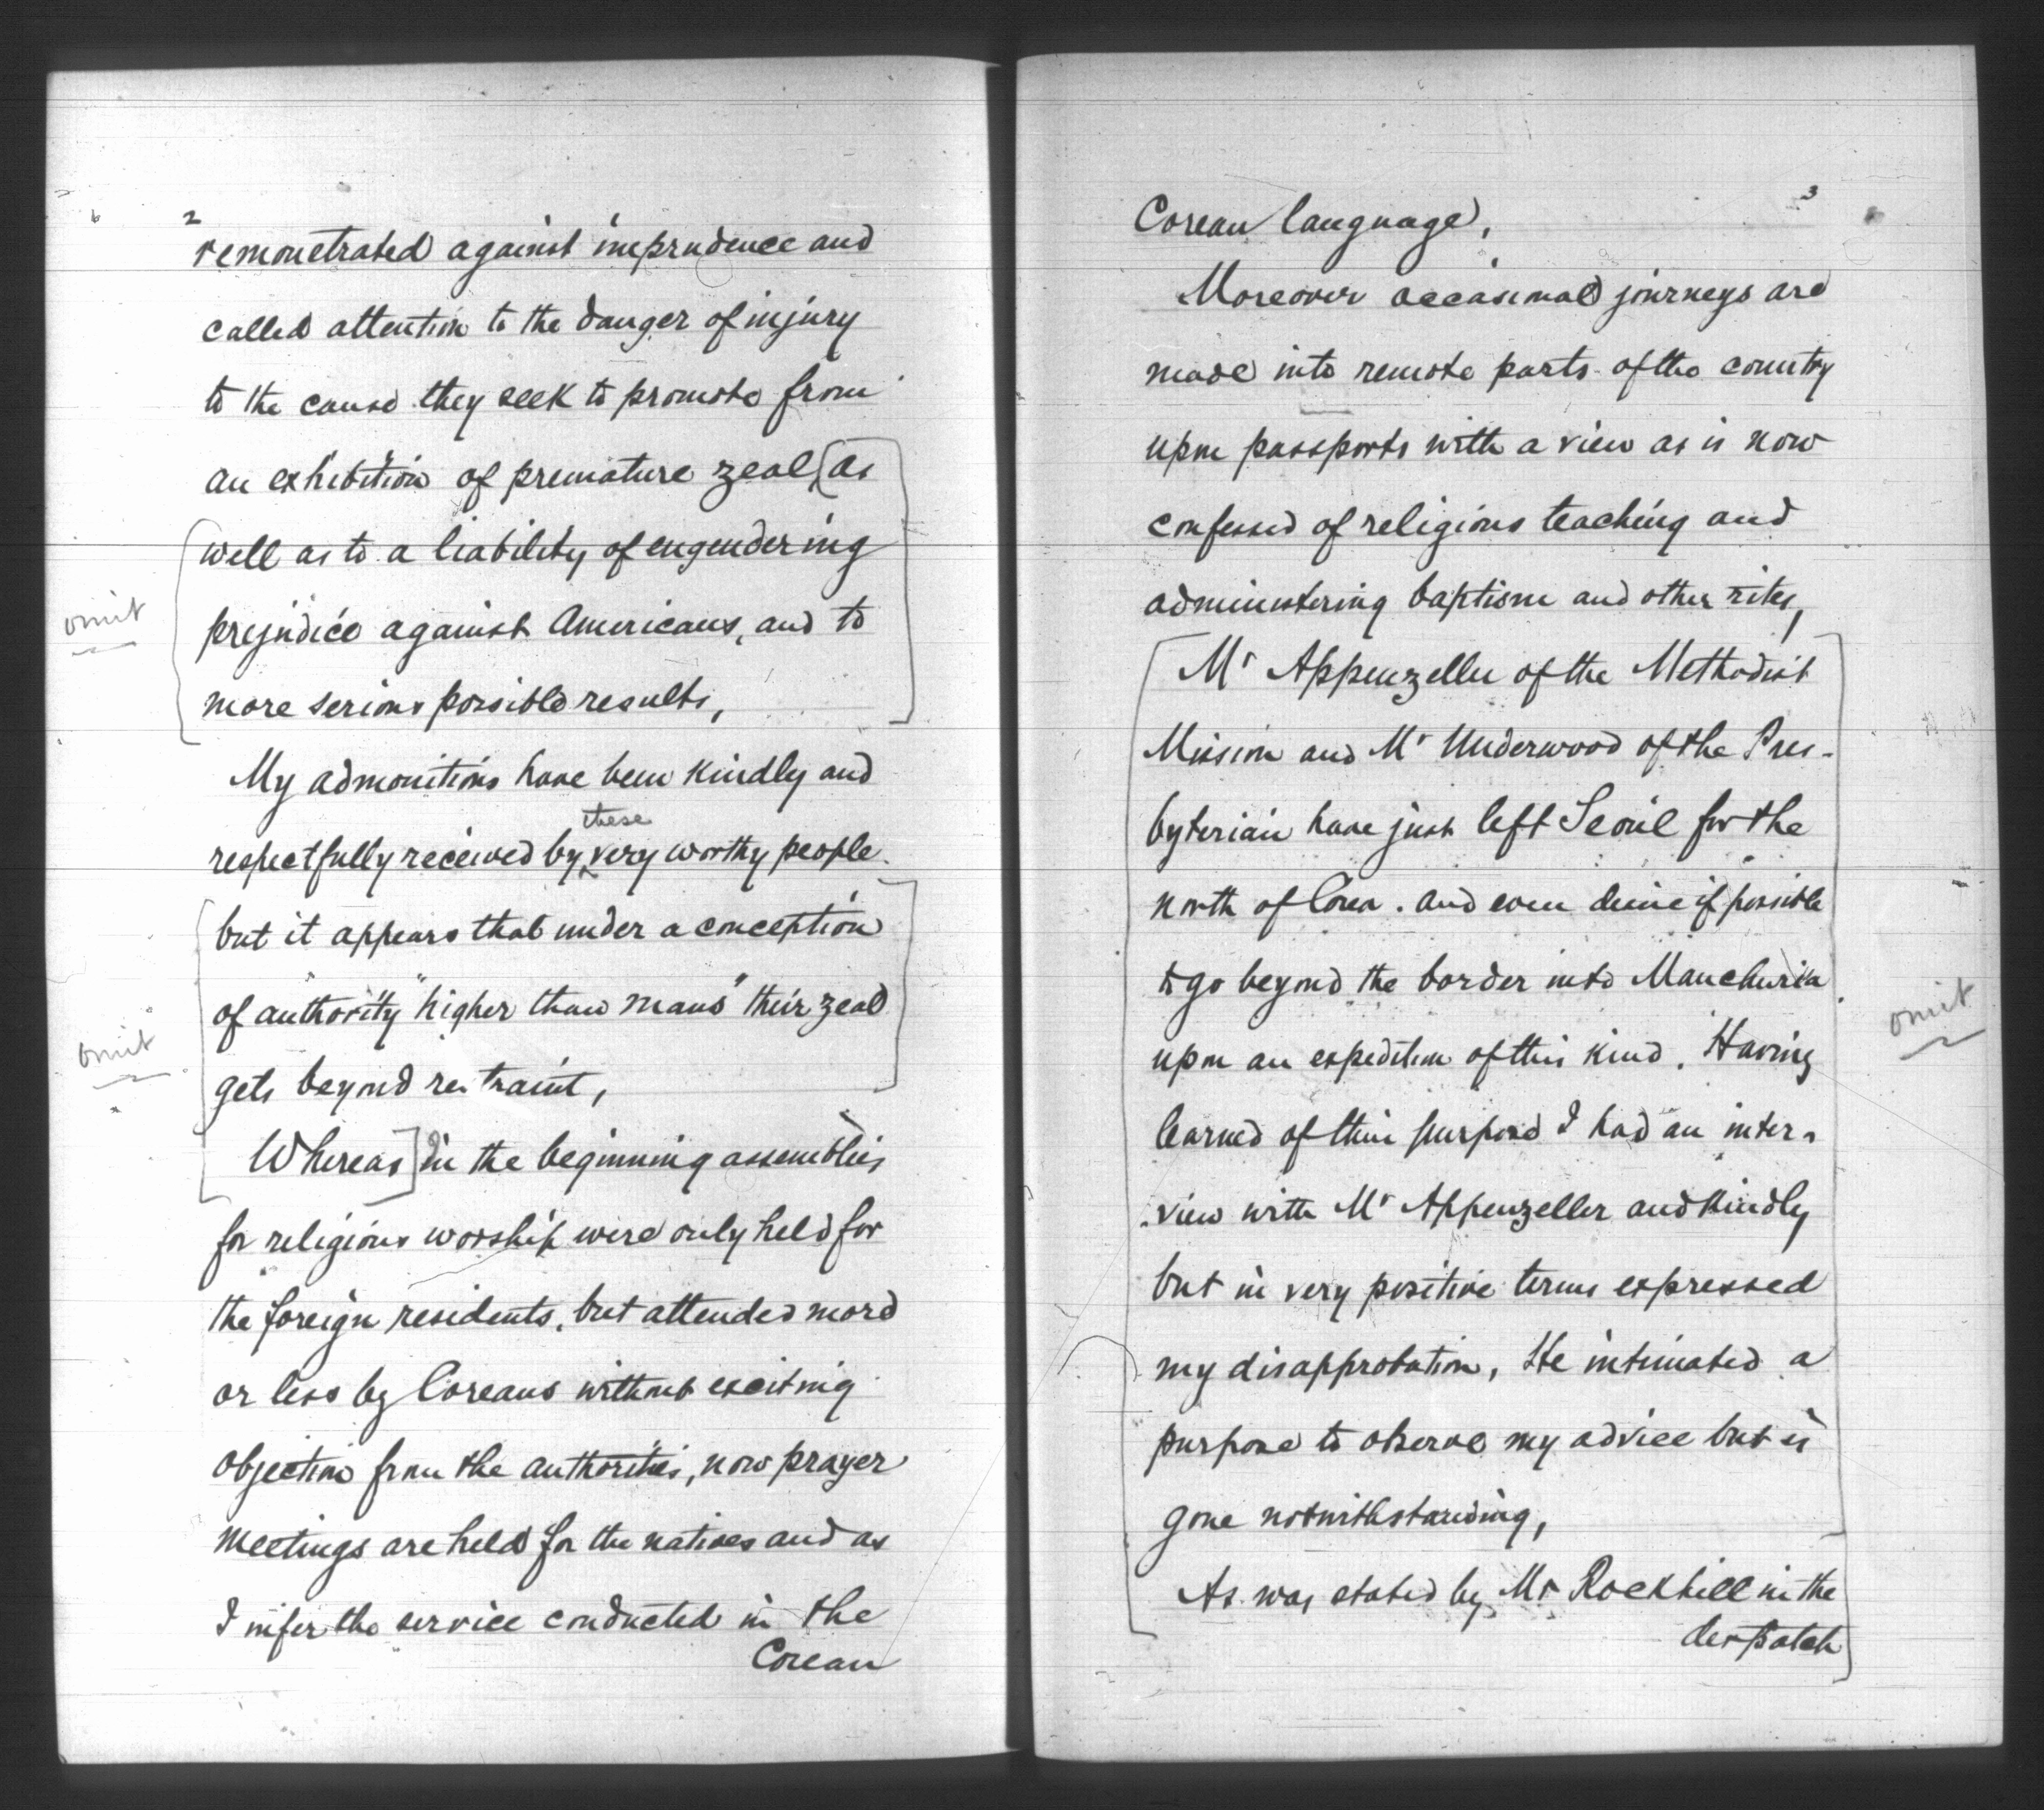 2
remonstrated against imprudence and
called attention to the danger of injury
to the cause they seek to promote from
an exhibition of premature zeal, [as
well as to a liability of engendering
omit
prejudice against Americans, and to
more serious possible results,]
My admonitions have been kindly and
these
respectfully received by ^ very worthy people.
[but it appears that under a conception
of authority "higher than mans" their zeal
omit
gets beyond restraint,]
[Whereas] in the beginning assemblies
for religious worship were only held for
the foreign residents, but attended more
or less by Coreans without exciting
objection from the authorities, now prayer
meetings are held for the natives and as
I infer the service conducted in the
Corean
3
Corean language,
Moreover occasional journeys are
made into remote parts of the country
upon passports with a view as is now
confessed of religious teaching and
administering baptism and other rites,
[Mr Appenzeller of the Methodist
Mission and Mr Underwood of the Pres-
byterian have just left Seoul for the
north of Corea. and even desire if possible
to go beyond the border into Manchuria
omit
upon an expedition of this kind. Having
learned of their purpose I had an inter-
-view with Mr Appenzeller and kindly
but in very positive terms expressed
my disapprobation, He intimated a
purpose to observe my advice but is
gone notwithstanding,
As was stated by Mr Rockhill in the
despatch]